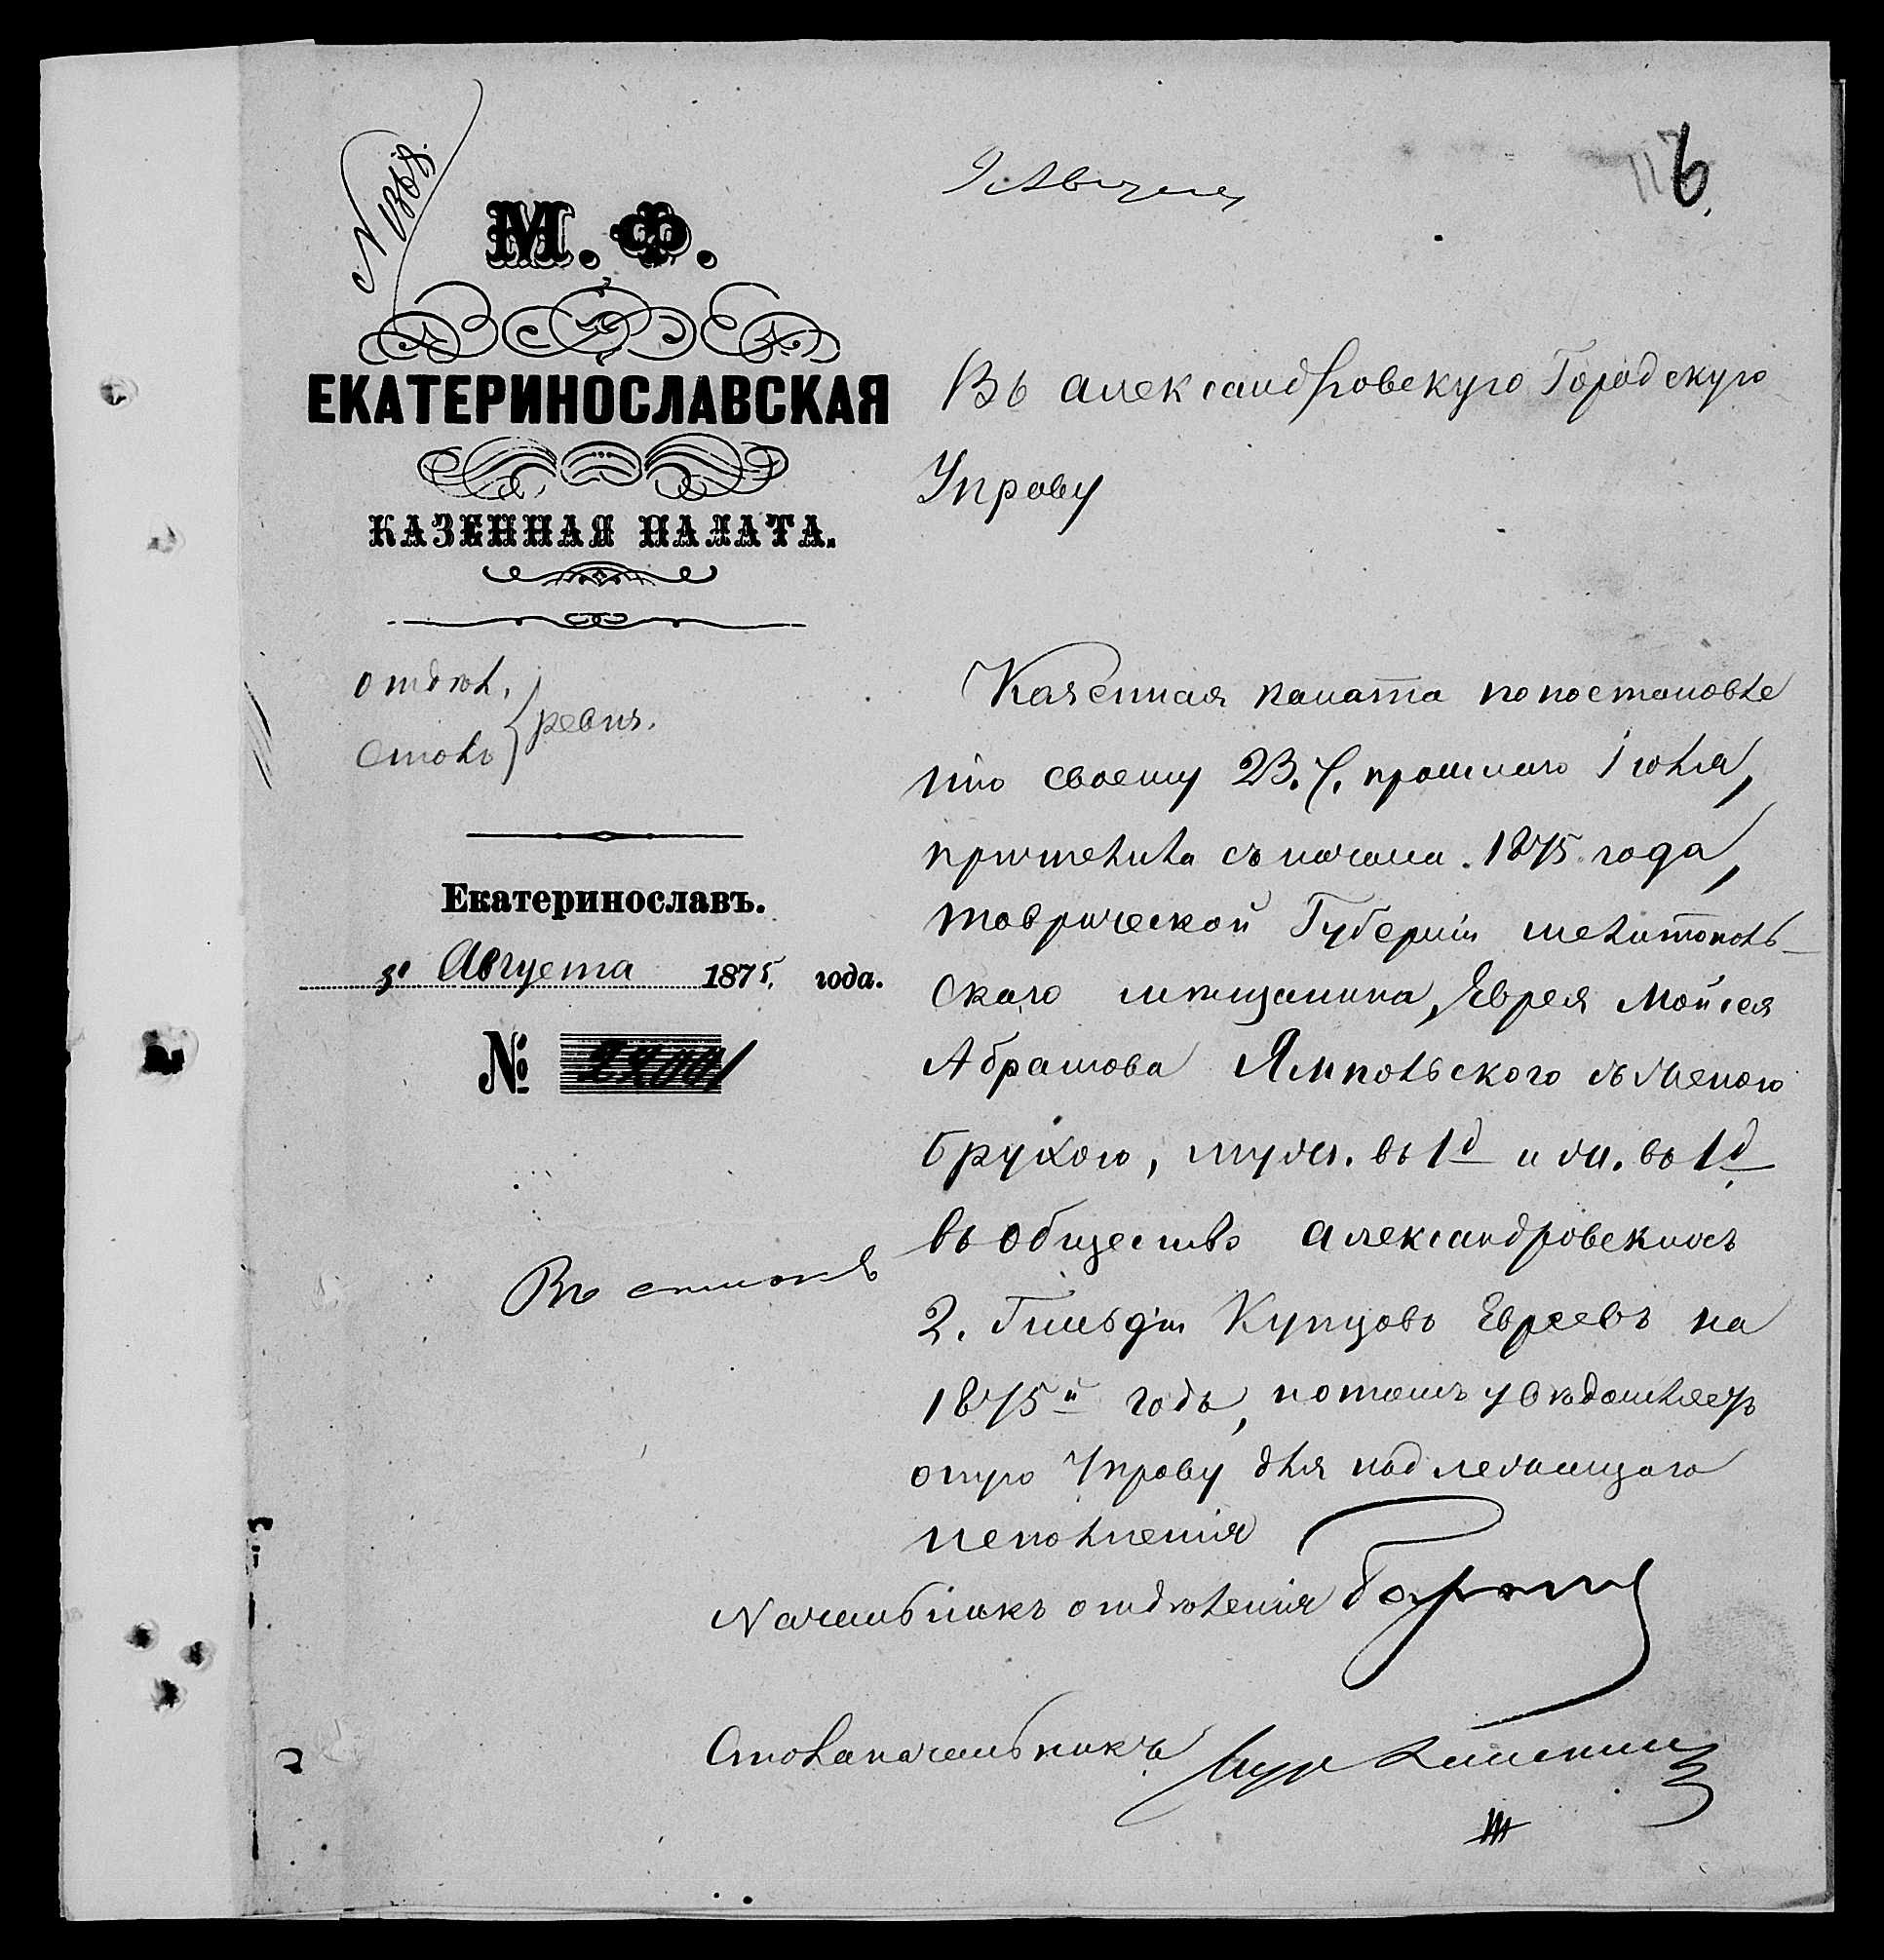 9 Августа
6.
М. Ф.
ЕКАТЕРИНОСЛАВСКАЯ
КАЗЕННАЯ ПАЛАТА.
отдѣл.
столъ
ревиз.
Екатеринославъ.
Августа 1875, года.
№ 22001
Въ списокъ
Въ Александровскую Городскую
Управу
Казенная палата по постановле
нію своему 23. ч. прошлаго Іюля,
причислила съ начала 1875 года,
таврической Губерніи мелитополь-
скаго мѣщанина, Еврея Мойсея
Абрамова Ямпольского съ женою
Брухою, муж. въ 1й и ж. въ 1й
въ общество Александровскихъ
2. Гильдіи Купцовъ Евреевъ на
1875й годъ, о томъ увѣдомляетъ
оную Управу для надлежащаго
исполненія
Начальникъ отдѣленія
Столоначальникъ